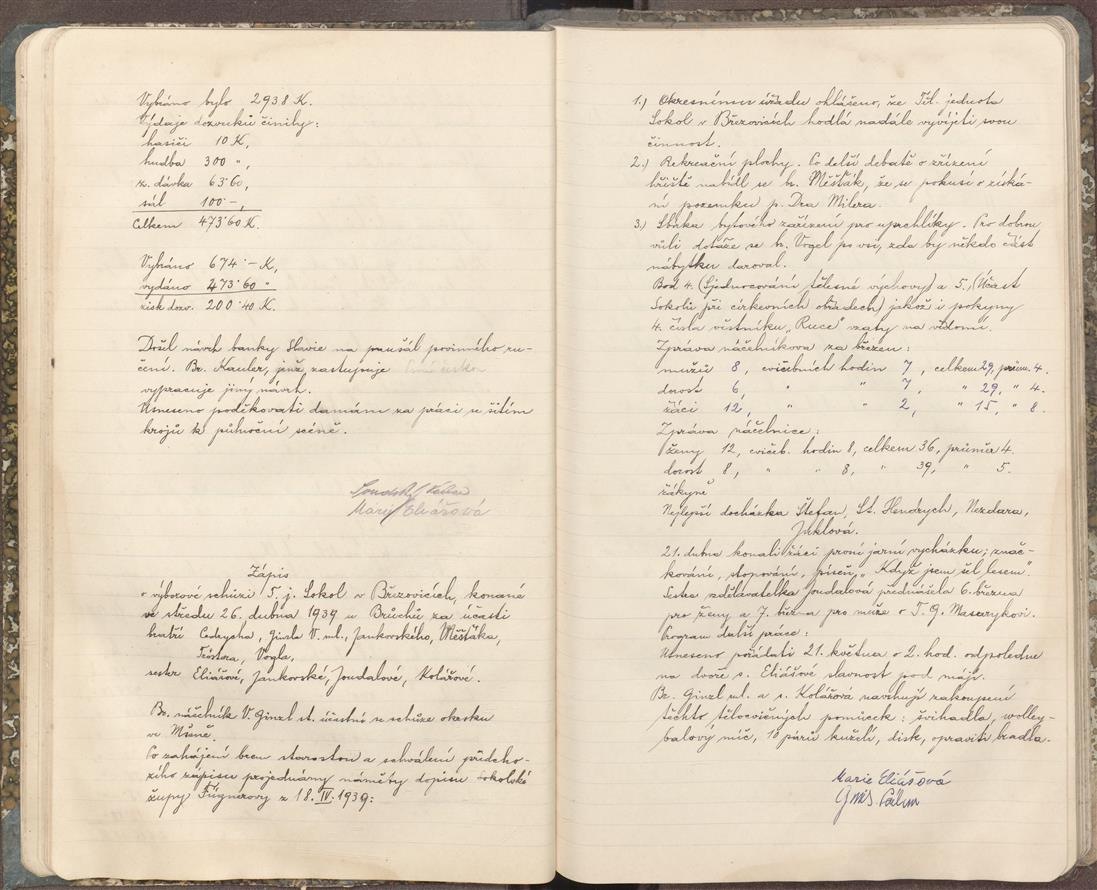 Vybráno bylo 2938 K.
Výdaje dozvuků činily:
hasiči 10 K,
hudba 300 „,
n. dávka 63·60,
sál 100·–,
Celkem 473·60 K.
Vybráno 674·– K,
vydáno 473·60 „
zisk dozv. 200·40 K.
Došel návrh banky Slavie na paušál povinného ru-
čení. Br. Kauler, jenž zastupuje
vypracuje jiný návrt.
Usneseno poděkovati damám za práci se šitím
krojů k půlnoční scéně.
Marie Eliášová
Zápis
o výborové schůzi T. j. Sokol v Březovicích, konané
ve středu 26. dubna 1939 u Brůchů za účasti
bratří Cedrycha, Ginzla V. ml., Jankovského, Měšťáka,
Vogla,
sester Eliášové, Jankovské, Jondalové, Kolářové.
Br. náčelník V. Ginzl st. účasten se schůze okrsku
ve Mšeně.
Po zahájení brem starostou a schválení předcho-
zího zápisu projednány náměty dopisu Sokolské
župy Fügnerovy z 18. IV. 1939:
1.) Okresnímu úřadu ohlášeno, že Těl. jednota
Sokol v Březovicích hodlá nadále vyvíjeti svou
činnost.
2.) Rekreační plochy. Po delší debatě o zřízení
hřiště nabídl se br. Měšťák, že se pokusí o získá-
ní pozemku p. Dra Milera.
3.) Sbírka bytového zařízení pro uprchlíky. Pro dobrou
vůli dotáže se br. Vogel po vsi, zda by někdo část
nábytku daroval.
Bod 4. (Sjednocování tělesné výchovy) a 5., (Účast
Sokolů při církevních obřadech) jakož i pokyny
4. čísla věstníku „Ruce" vzaty na vědomí.
Zpráva náčelníkova za březen:
mužů 8, cvičebních hodin 7, celkem 29, prům. 4.
dorost 6, „ „ 7, „ 29, „ 4.
žáci 12, „ „ 2, „ 15, „ 8.
Zpráva náčelnice:
ženy 12, cvičeb. hodin 8, celkem 36, průměr 4.
dorost 8, „ „ 8, „ 39, „ 5.
žákyně
Nejlepší docházka Štefan, St. Hendrych, Nezdara,
Juklová.
21. dubna konali žáci první jarní vycházku; znač-
kování, stopování, píseň „Když jsem šel lesem".
Sestra vzdělavatelka Jondalová přednášela 6. března
pro ženy a 7. března pro muže o T. G. Masarykovi.
Program další práce:
Usneseno pořádati 21. května o 2. hod. odpoledne
na dvoře s. Eliášové slavnost pod máji.
Br. Ginzl ml. a s. Kolářová navrhují zakoupení
těchto tělocvičných pomůcek: švihadla, wolley-
balový míč, 10 párů kuželí, disk, opraviti bradla.
Marie Eliášová